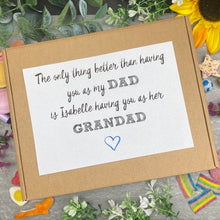 The only thing better than having
you as my DAD
is Isabelle having you as her
GRANDAD